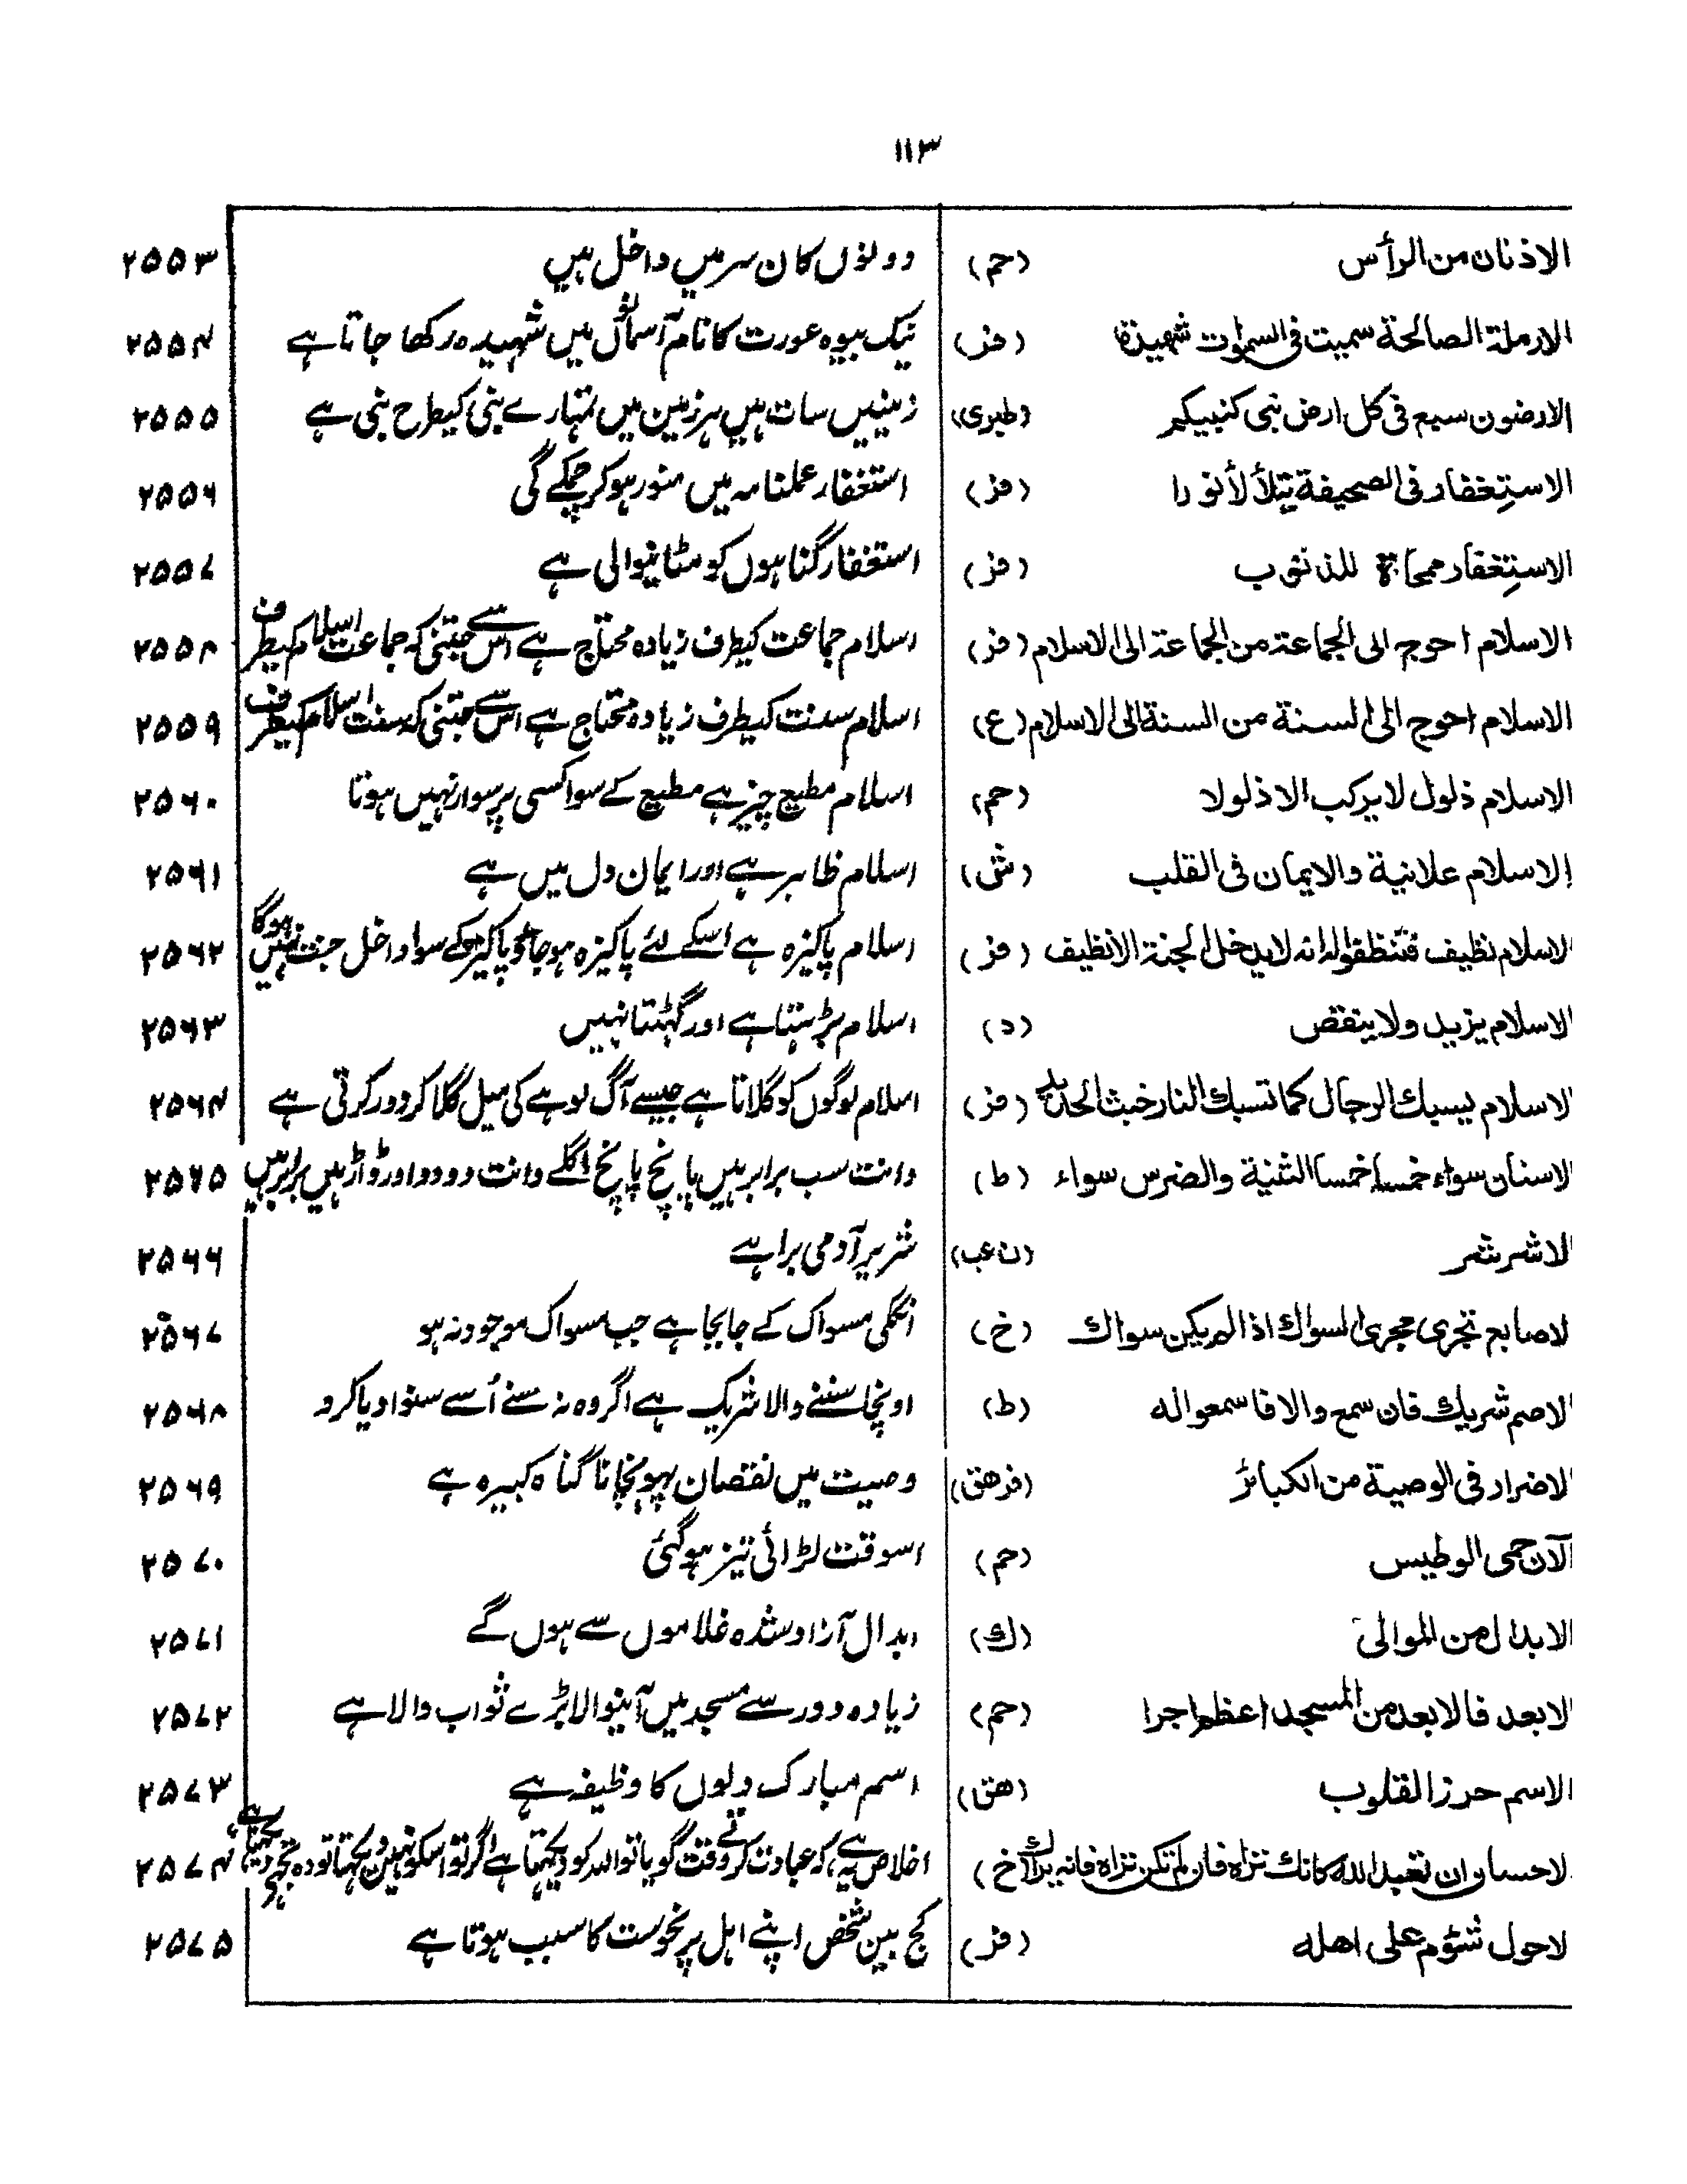 ۱۱۳
الاذنان من الرأس (حم) دونوں کان سر میں داخل ہیں ۲۵۵۳
الارملة الصالحة سميت فى السموات شهيدة (فز) نیک بیوہ عورت کا نام آسمانوں میں شہیدہ رکھا جاتا ہے ۲۵۵۴
الارضون سبع فى كل ارض نبى كنبيكم (طبری) زمینیں سات ہیں ہر زمین میں تمہارے نبی کیطرح نبی ہے ۲۵۵۵
الاستغفار فى الصحيفة يتلألأ نورا (فز) استغفار عملنامہ میں منور ہوکر چمکے گی ۲۵۵۶
الاستغفار ممحاة للذنوب (فز) استغفار گناہوں کو مٹانیوالی ہے ۲۵۵۷
الاسلام احوج الى الجماعة من الجماعة الى الاسلام (فز) اسلام جماعت کیطرف زیادہ محتاج ہے اس سے جتنی کہ جماعت اسلام کیطرف ۲۵۵۸
الاسلام احوج الى السنة من السنة الى الاسلام (ع) اسلام سنت کیطرف زیادہ محتاج ہے اس سے جتنی کہ سنت اسلام کیطرف ۲۵۵۹
الاسلام ذلول لا يركب الا ذلولا (حم) اسلام مطیع چیز ہے مطیع کے سوا کسی پر سوار نہیں ہوتا ۲۵۶۰
الاسلام علانية والايمان فى القلب (ش) اسلام ظاہر ہے اور ایمان دل میں ہے ۲۵۶۱
الاسلام نظيف فتنظفوا له انه لا يدخل الجنة الا نظيف (فز) اسلام پاکیزہ ہے اسکے لئے پاکیزہ ہو جاؤ پاکیزہ کے سوا داخل جنت نہیں ہوگا ۲۵۶۲
الاسلام يزيد ولا ينقض (د) اسلام بڑہتا ہے اور گہٹتا نہیں ۲۵۶۳
لاسلام يسبك الرجال كما تسبك النار خبث الحديد (فز) اسلام لوگوں کو گلاتا ہے جیسے آگ لوہے کی میل گلا کر دور کرتی ہے ۲۵۶۴
لاسنان سواء خمسا خمسا الثنية والضرس سواء (ط) دانت سب برابر ہیں پانچ پانچ اگلے دانت دو دو اور ڈاڑہیں برابر ہیں ۲۵۶۵
لاشر شر (ن عب) شریر آدمی برا ہے ۲۵۶۶
لاصابع تجرى مجرى السواك اذا لم يكن سواك (خ) انگلی مسواک کے جابجا ہے جب مسواک موجود نہ ہو ۲۵۶۷
لاصم شريك فان سمع والا فاسمعوا له (ط) اونچا سننے والا شریک ہے اگر وہ نہ سنے اُسے سنوا دیا کرو ۲۵۶۸
لاضرار فى الوصية من الكبائر (فز هق) وصیت میں نقصان پہونچانا گناہ کبیرہ ہے ۲۵۶۹
الآن حمى الوطيس (حم) اسوقت لڑائی تیز ہو گئی ۲۵۷۰
الابدال من الموالى (ك) ابدال آزاد شدہ غلاموں سے ہوں گے ۲۵۷۱
الابعد فالابعد من المسجد اعظم اجرا (حم) زیادہ دور سے مسجد میں آنیوالا بڑے ثواب والا ہے ۲۵۷۲
الاسم حرز القلوب (هق) اسم مبارک دلوں کا وظیفہ ہے ۲۵۷۳
لاحسان ان تعبد الله كانك تراه فان لم تكن تراه فانه يراك (خ) اخلاص یہ ہے کہ عبادت کرتے وقت گویا تو اللہ کو دیکہتا ہے اگر تو اسکو نہیں دیکہتا تو وہ تجہے دیکہتا ہے ۲۵۷۴
لاحول شؤم على اهله (فز) کج بین شخص اپنے اہل پر نحوست کا سبب ہوتا ہے ۲۵۷۵